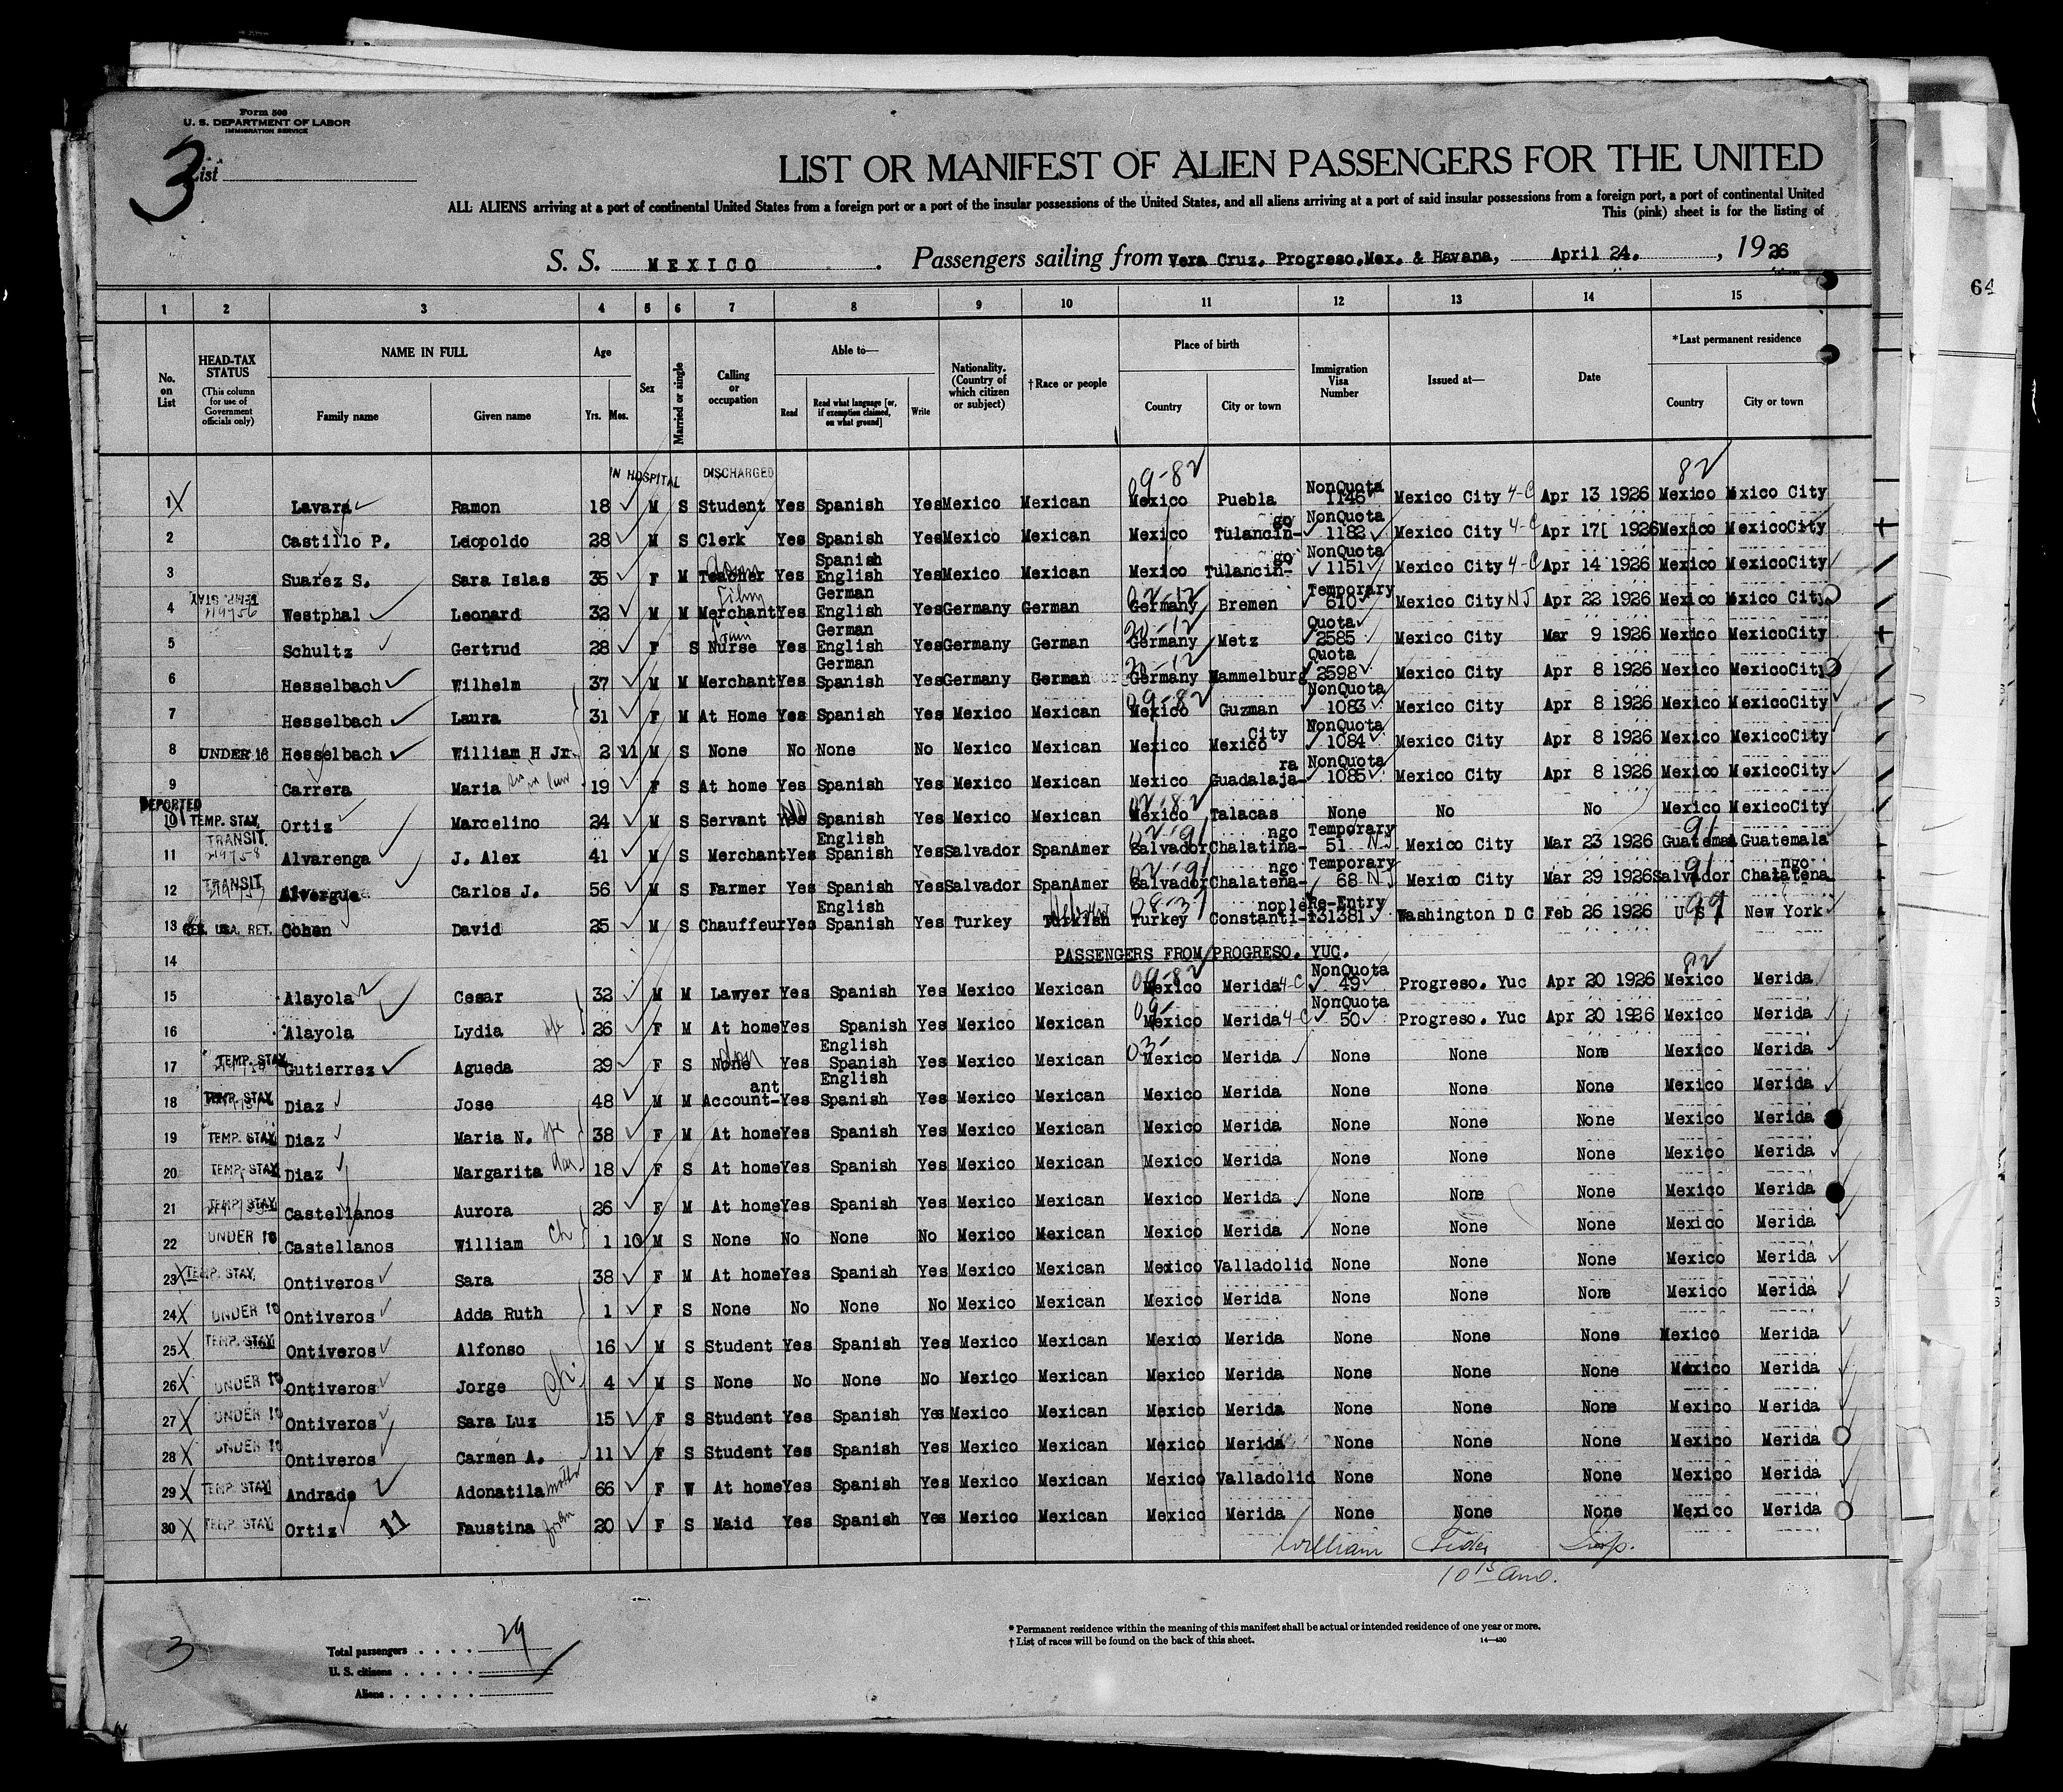 Form 500
U. S. DEPARTMENT OF LABOR
IMMIGRATION SERVICE
3
List
LIST OR MANIFEST OF ALIEN PASSENGERS FOR THE UNITED
ALL ALIENS arriving at a port of continental United States from a foreign port or a port of the insular possessions of the United States, and all aliens arriving at a port of said insular possessions from a foreign port, a port of continental United
This (pink) sheet is for the listing of
S. S. MEXICO. Passengers sailing from Vera Cruz. Progreso.Mex. & Havana, April 24. , 1926
64
1 2 3 4 5 6 7 8 9 10 11 12 13 14 15
No. on List
HEAD-TAX STATUS
(This column for use of Government officials only)
NAME IN FULL
Family name Given name
Age
Yrs. Mos.
Sex
Married or single
Calling or occupation
Able to—
Read Read what language [or, if exemption claimed, on what ground] Write
Nationality. (Country of which citizen or subject)
†Race or people
Place of birth
Country City or town
Immigration Visa Number
Issued at—
Date
*Last permanent residence
Country City or town
IN HOSPITAL DISCHARGED 09-82 82
1 X Lavara Ramon 18 M S Student Yes Spanish Yes Mexico Mexican Mexico Puebla NonQuota 1146 Mexico City 4-C Apr 13 1926 Mexico Mxico City
2 Castillo P. Leopoldo 28 M S Clerk Yes Spanish Yes Mexico Mexican Mexico Tulancin-go NonQuota 1182 Mexico City 4-C Apr 17[ 1926 Mexico MexicoCity
3 Suarez S. Sara Islas 35 F M Teacher Yes Spanish English Yes Mexico Mexican Mexico Tulancin-go NonQuota 1151 Mexico City 4-C Apr 14 1926 Mexico MexicoCity
4 TEMP. STAY Westphal Leonard 32 M M Merchant Yes German English Yes Germany German Germany Bremen Temporary 610 Mexico City NJ Apr 22 1926 Mexico Mxico City
5 Schultz Gertrud 28 F S Nurse Yes German English Yes Germany German Germany Metz Quota 2585 Mexico City Mar 9 1926 Mexico MexicoCity
6 Hesselbach Wilhelm 37 M M Merchant Yes German Spanish Yes Germany German Germany Hammelburg Quota 2598 Mexico City Apr 8 1926 Mexico MexicoCity
7 Hesselbach Laura 31 F M At Home Yes Spanish Yes Mexico Mexican 09-82 Mexico Guzman NonQuota 1083 Mexico City Apr 8 1926 Mexico MexicoCity
8 UNDER 16 Hesselbach William H Jr 2 11 M S None No None No Mexico Mexican Mexico Mexico City NonQuota 1084 Mexico City Apr 8 1926 Mexico MexicoCity
9 Carrera Maria sis in law 19 F S At home Yes Spanish Yes Mexico Mexican Mexico Guadalaja-ra NonQuota 1085 Mexico City Apr 8 1926 Mexico MexicoCity
DEPORTED
10 TEMP. STAY Ortiz Marcelino 24 M S Servant No Spanish Yes Mexico Mexican Mexico Talacas None No No Mexico MexicoCity
11 TRANSIT. Alvarenga J. Alex 41 M S Merchant Yes English Spanish Yes Salvador SpanAmer Salvador Chalatina-ngo Temporary 51 NJ Mexico City Mar 23 1926 Guatemal Guatemala
12 TRANSIT Alvergue Carlos J. 56 M S Farmer Yes Spanish Yes Salvador SpanAmer Salvador Chalatena-ngo Temporary 68 NJ Mexico City Mar 29 1926 Salvador Chalatena ngo
13 RES. USA. RET. Cohen David 25 M S Chauffeur Yes English Spanish Yes Turkey Turkish Hebrew Turkey Constanti-nople Re-Entry 131381 Washington D C Feb 26 1926 U S New York
14 PASSENGERS FROM PROGRESO. YUC.
15 Alayola Cesar 32 M M Lawyer Yes Spanish Yes Mexico Mexican 09-82 Mexico Merida 4-C NonQuota 49 Progreso. Yuc Apr 20 1926 Mexico Merida
16 Alayola Lydia 26 F M At home Yes Spanish Yes Mexico Mexican Mexico Merida 4-C NonQuota 50 Progreso. Yuc Apr 20 1926 Mexico Merida
17 TEMP. STAY Gutierrez Agueda 29 F S None Yes English Spanish Yes Mexico Mexican 03- Mexico Merida None None None Mexico Merida
18 TEMP. STAY Diaz Jose 48 M M Account-ant Yes English Spanish Yes Mexico Mexican Mexico Merida None None None Mexico Merida
19 TEMP. STAY Diaz Maria N. 38 F M At home Yes Spanish Yes Mexico Mexican Mexico Merida None None None Mexico Merida
20 TEMP. STAY Diaz Margarita dau 18 F S At home Yes Spanish Yes Mexico Mexican Mexico Merida None None None Mexico Merida
21 TEMP. STAY Castellanos Aurora 26 F M At home Yes Spanish Yes Mexico Mexican Mexico Merida None None None Mexico Merida
22 UNDER 16 Castellanos William Ch 1 10 M S None No None No Mexico Mexican Mexico Merida None None None Mexico Merida
23 X TEMP. STAY. Ontiveros Sara 38 F M At home Yes Spanish Yes Mexico Mexican Mexico Valladolid None None None Mexico Merida
24 X UNDER 16 Ontiveros Adda Ruth 1 F S None No None No Mexico Mexican Mexico Merida None None None Mexico Merida
25 X TEMP. STAY Ontiveros Alfonso 16 M S Student Yes Spanish Yes Mexico Mexican Mexico Merida None None None Mexico Merida
26 X UNDER 16 Ontiveros Jorge Ch. 4 M S None No None No Mexico Mexican Mexico Merida None None None Mexico Merida
27 X UNDER 16 Ontiveros Sara Luz 15 F S Student Yes Spanish Yes Mexico Mexican Mexico Merida None None None Mexico Merida
28 X UNDER 16 Ontiveros Carmen A. 11 F S Student Yes Spanish Yes Mexico Mexican Mexico Merida None None None Mexico Merida
29 X TEMP. STAY Andrade Adonatila mother 66 F W At home Yes Spanish Yes Mexico Mexican Mexico Valladolid None None None Mexico Merida
30 X TEMP. STAY Ortiz 11 Faustina 20 F S Maid Yes Spanish Yes Mexico Mexican Mexico Merida None None None Mexico Merida
William Insp.
3
Total passengers . . . . 29
U. S. citizens . . . . .
Aliens . . . . . .
* Permanent residence within the meaning of this manifest shall be actual or intended residence of one year or more.
† List of races will be found on the back of this sheet. 14—430